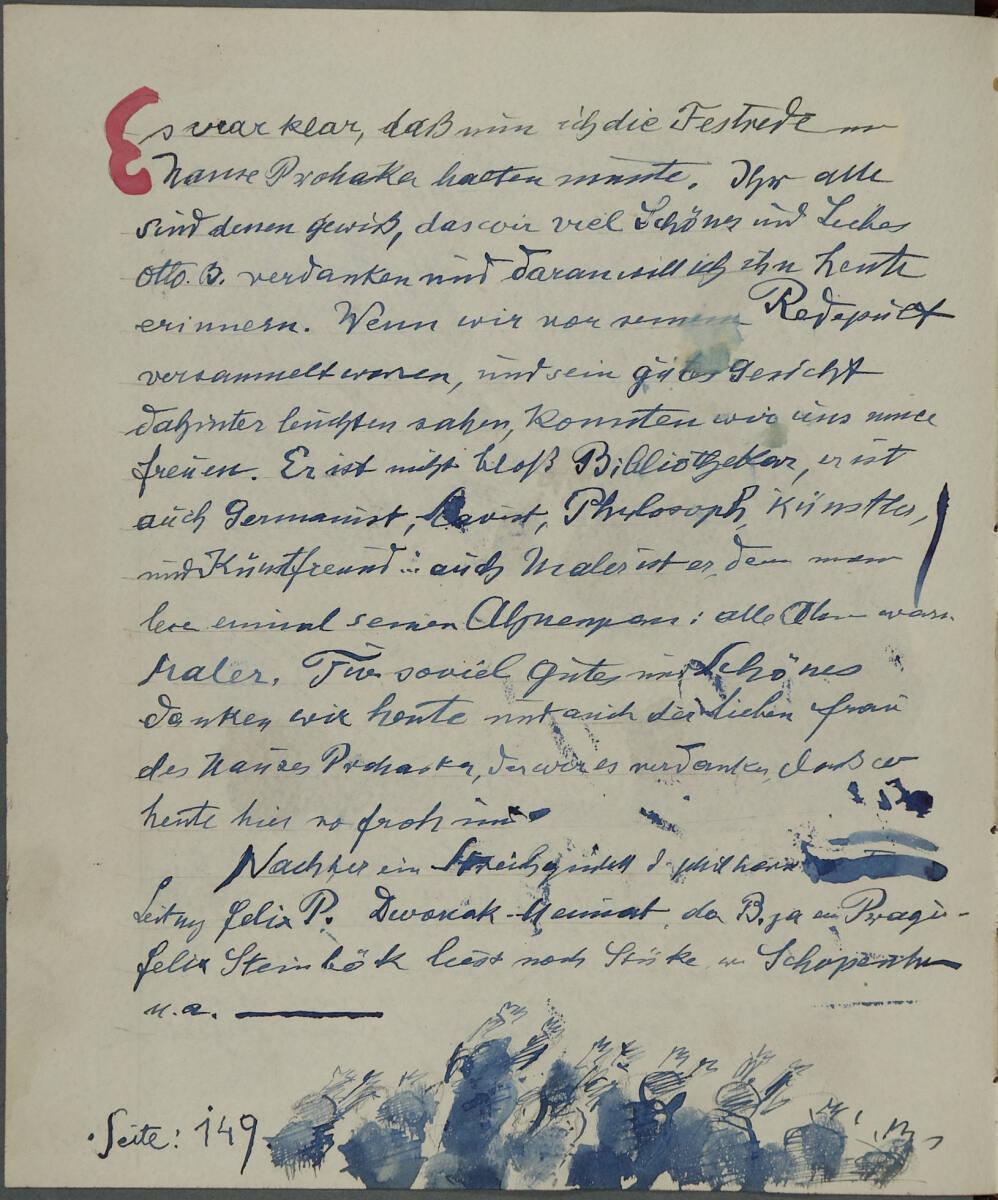 Es war klar, daß nun ich die Festrede im
Hause Prohaka halten mußte. Ihr alle
sind dessen gewiß, das wir viel Schönes und Liebes
Otto. B. verdanken und daran will ich ihn heute
erinnern. Wenn wir vor seinem Redepult
versammelt waren, und sein gutes Gesicht
dahinter leuchten sahen, konnten wir uns immer
freuen. Er ist nicht bloß Bibliothekar, er ist
auch Germanist, Philosoph, Künstler,
und Kunstfreund auch Maler ist er, denn man
lese einmal seinen : alle waren
Maler. Für soviel Gutes und Schönes
danken wir heute und auch der lieben Frau
des Hauses Prohaska, der wir es verdanken, daß wir
heute hier so froh sind
Nachher ein Streichquintett d.
Leitung Felix P. Dworak - da B. ja ein Prager -
Felix Steinböck liest noch Stücke Schopenh
u.a.
Seite: 149